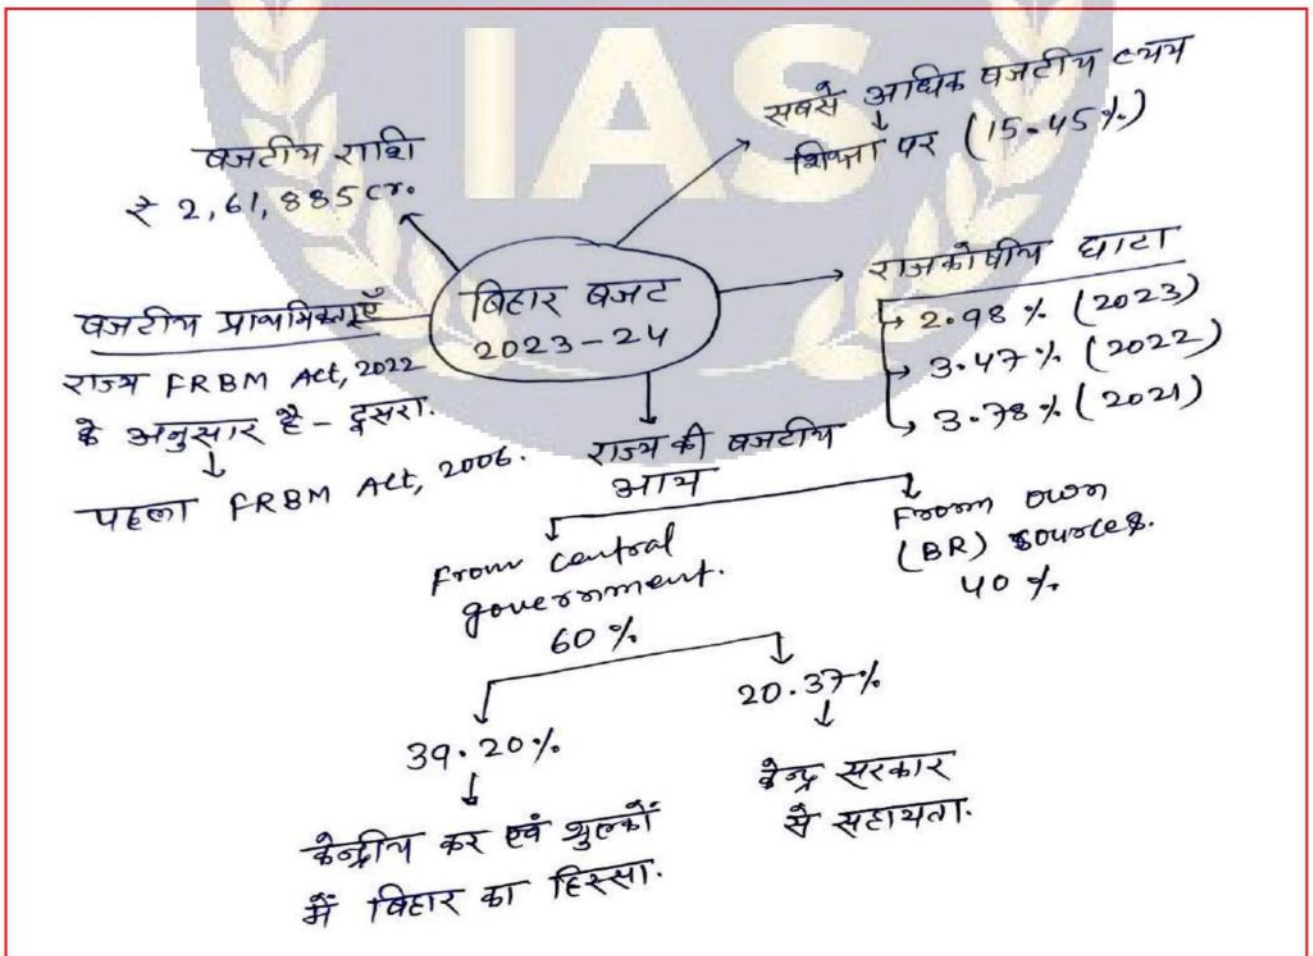 IAS
सबसे अधिक बजटीय व्यय
↓
शिक्षा पर (15.45%)
बजटीय राशि
₹ 2,61,885 cr.
बिहार बजट
2023-24
राजकोषीय घाटा
→ 2.98% (2023)
→ 3.47% (2022)
→ 3.78% (2021)
बजटीय प्राथमिकताएँ
राज्य FRBM Act, 2022
के अनुसार है - दूसरा.
↓
पहला FRBM Act, 2006.
राज्य की बजटीय
आय
From central
government.
60%
From own
(BR) sources.
40%
39.20%
↓
केन्द्रीय कर एवं शुल्कों
में बिहार का हिस्सा.
20.37%
↓
केन्द्र सरकार
से सहायता.